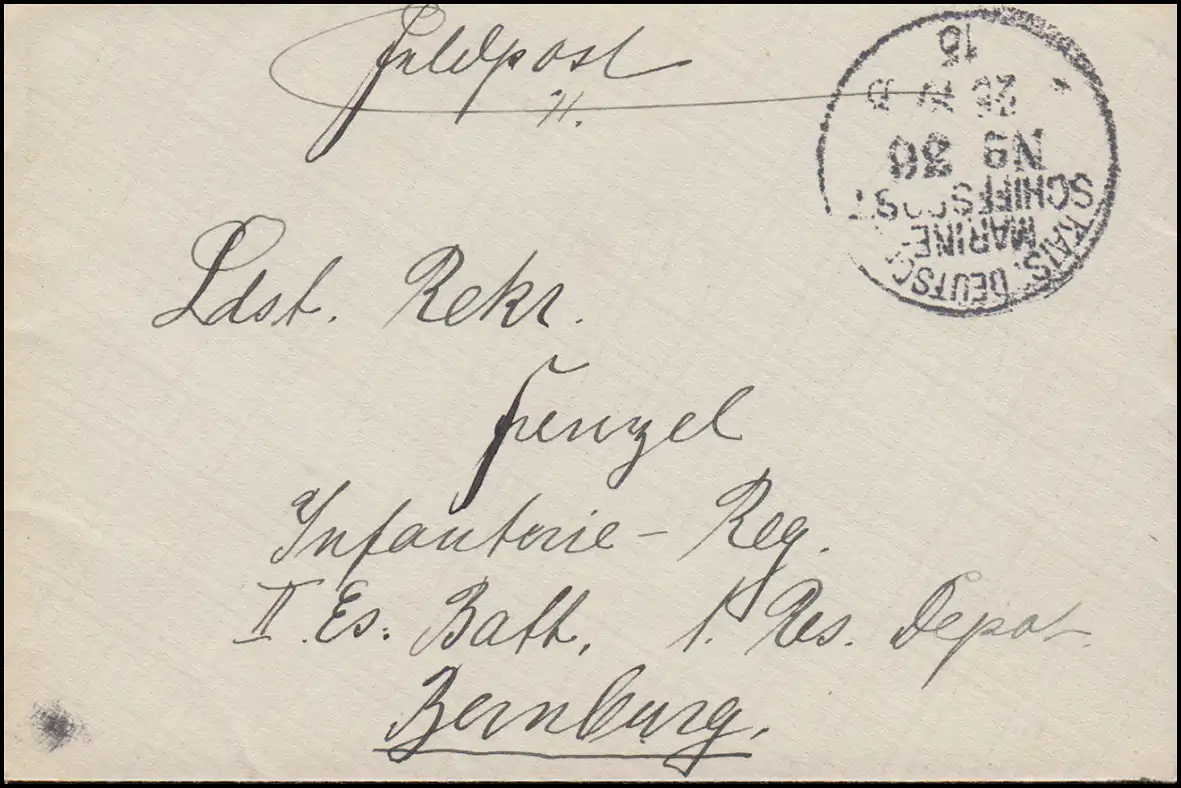 Feldpost
Ldst. Rekr.
Fenzel
Infanterie-Reg.
II. Es. Batt. 1. Res. Depot
Bernburg.
KAIS. DEUTSCHE
MARINE
SCHIFFSPOST
No 36
26 IV
15